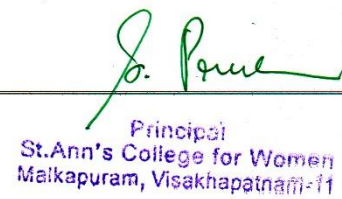 Principal
St.Ann's College for Women
Malkapuram, Visakhapatnam-11